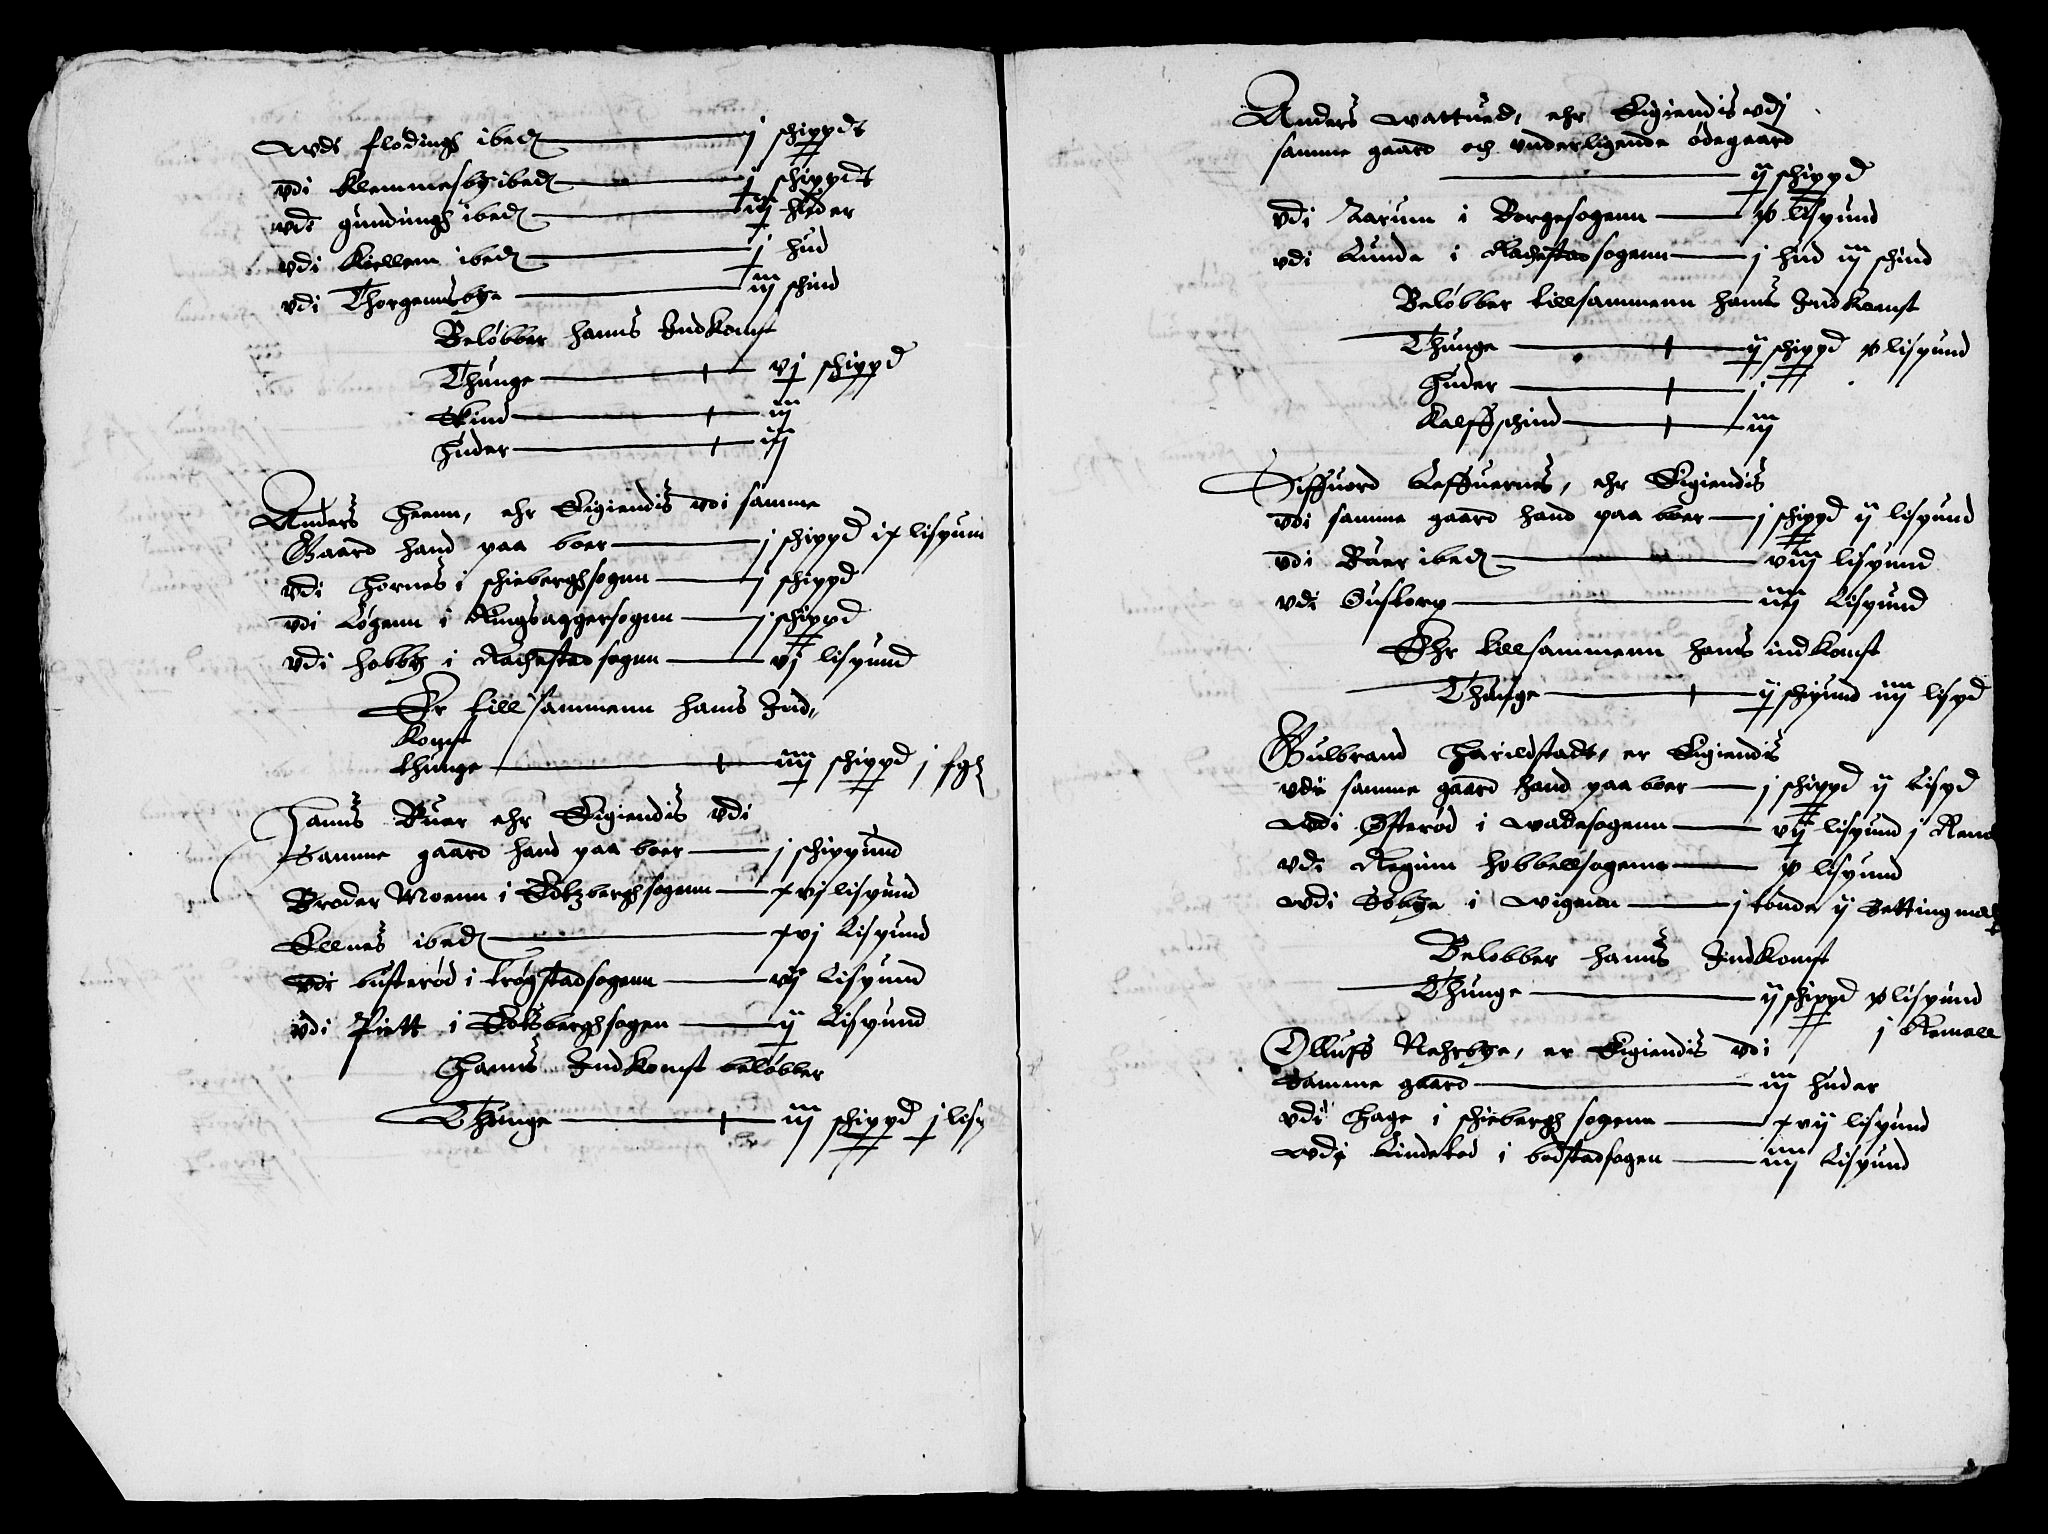 Wdi flødingh ibed j schippdt
vdi Klemmesby ibed j schippdt
vdi gundingh ibed iij huder
vdi Kiellem ibed j hud
vdi Thorgennsbye iij schind
Beløbber hanns Indkomst
Thunge vj schippd
Skind iij
Huder iiij
Anders Heenn, ehr Eigiendis vdi samme
Gaard hand paa boer j schippd ix lispund
vdi Hornes i schiebergh sognn j schippd
vdi Løgenn i Ringsaggersognn j schippd
vdi hobby i Rachestad sognn vj lispund
Er till sammenn hans Ind,,
Komst
thunge iiij schippd j
Hanns Buer ehr Eigiendis vdi
Samme gaard hand paa boer j schippund
Broder Moenn i Edtzberghsogenn xvj lispund
Ellnes ibed xvj Lispund
vdi busterød i trøgstadsogenn vij Lispund
vdi Piltt i Edtsberghsogen ij Lispund
Hanns Indkomst beløbber
Thunge iij schippd j lisp
Anders wattued, ehr Eigiendis vdj
samme gaard och vnderligende ødegaard
ij schippd
vdi Aarum i Borgesogenn x lispund
vdi Lunde i Rachestad sogenn j hud iij schind
Beløbber tillsammenn hanns Indkomst
Thunge ij schippd x lispund
Huder j
Kalffschind iij
Siffuord Leffuernes, ehr Eigiendis
vdi samme gaard hand paa boer j schippd ij lispund
vdi Buer ibed viij lispund
vdi Gustorp iiij Lispund
Ehr tillsammenn hans indkomst
Thunge ij schipund iiij lispd
Gulbrand Harildstadt, er Eigiendis
vdi samme gaard hand paa boer j schippd ij Lispd
Wdi Østerød i wadesogenn vij lispund j Rem
vdi Reginn hobbellsogenn x lispund
Wdi Sobye i wigenn j tønde ij Setting mall
Beløbber hanns Indkomst
Thunge ij schippd x lispund
j Remell
Olluff Nehrbye, er Eigiendis vdi
Samme gaard iij huder
vdi Hage i schiebergh sogenn xvij lispund
Wdj Lindetod i bodstadsogen iiij Lispund